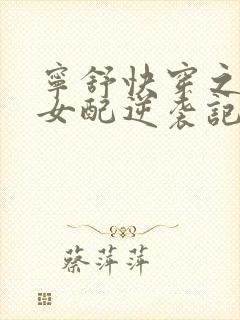 寧舒快穿之
女配逆袭記
蔡萍萍